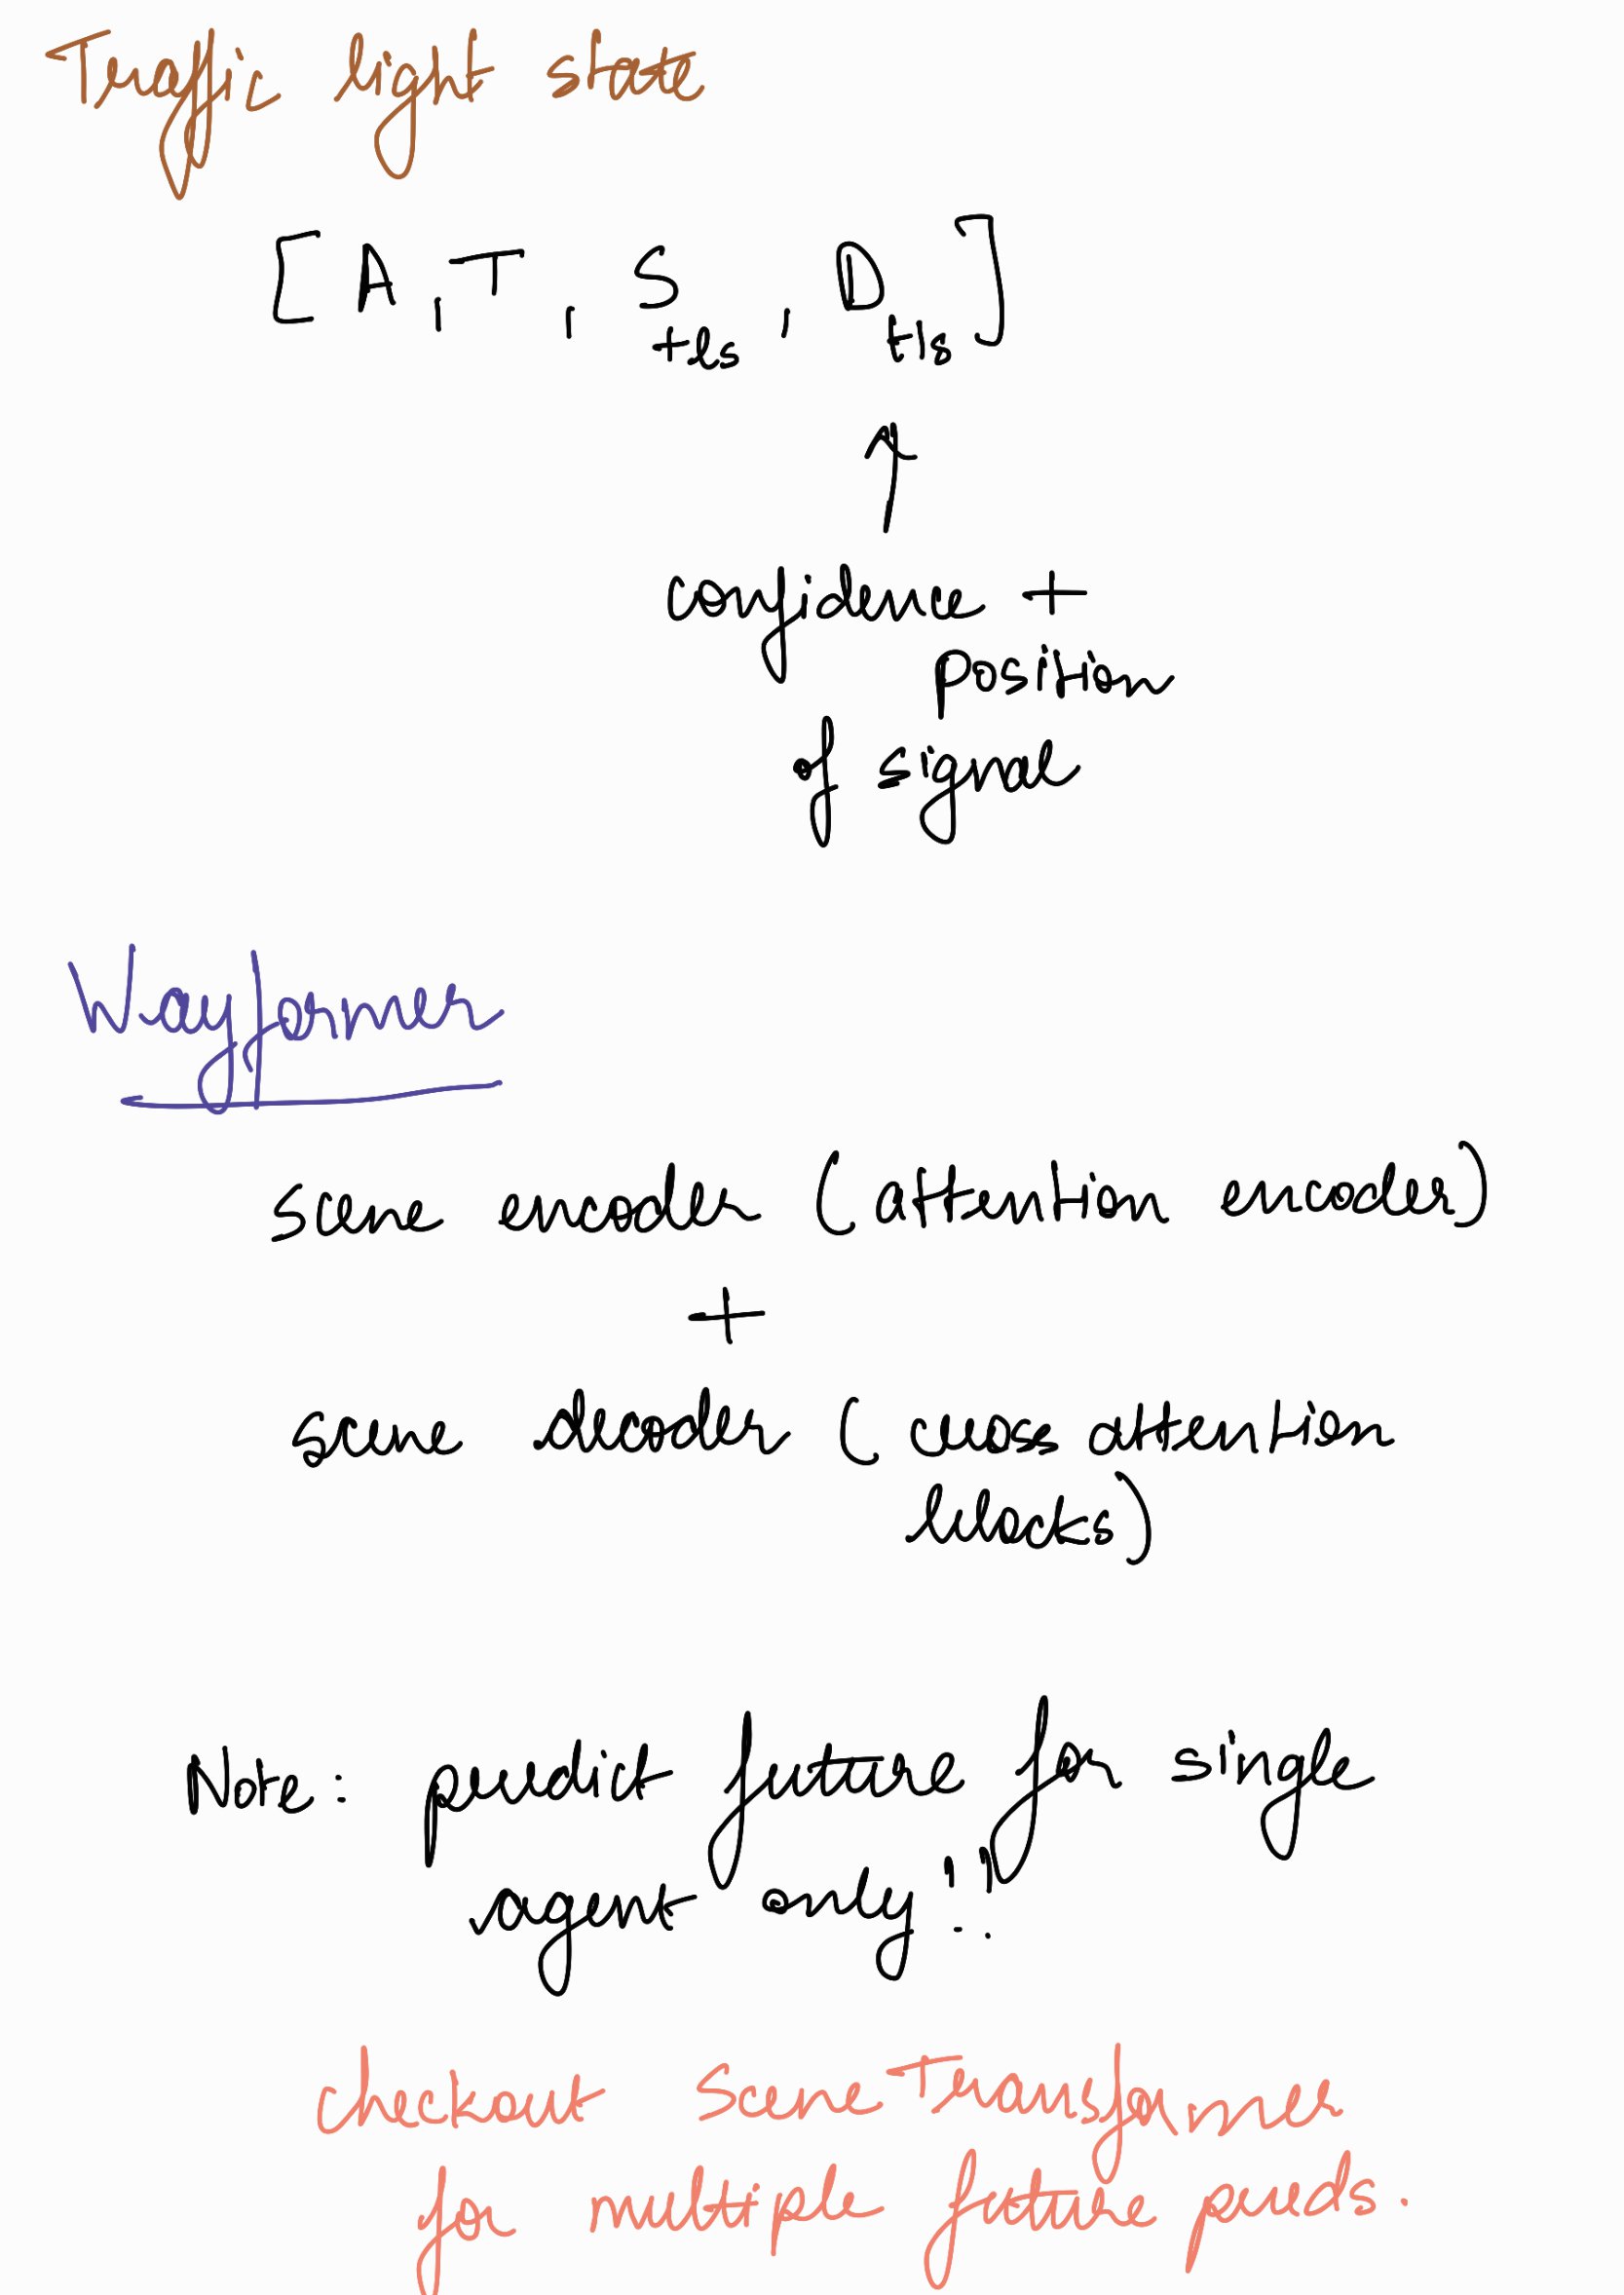 Traffic light state
[A, T, S_tls, D_tls]
↑
confidence +
position
of signal
Wayformer
scene encoder (attention encoder)
+
scene decoder (cross attention
blocks)
Note: predict future for single
agent only!!
checkout Scene Transformer
for multiple future preds.